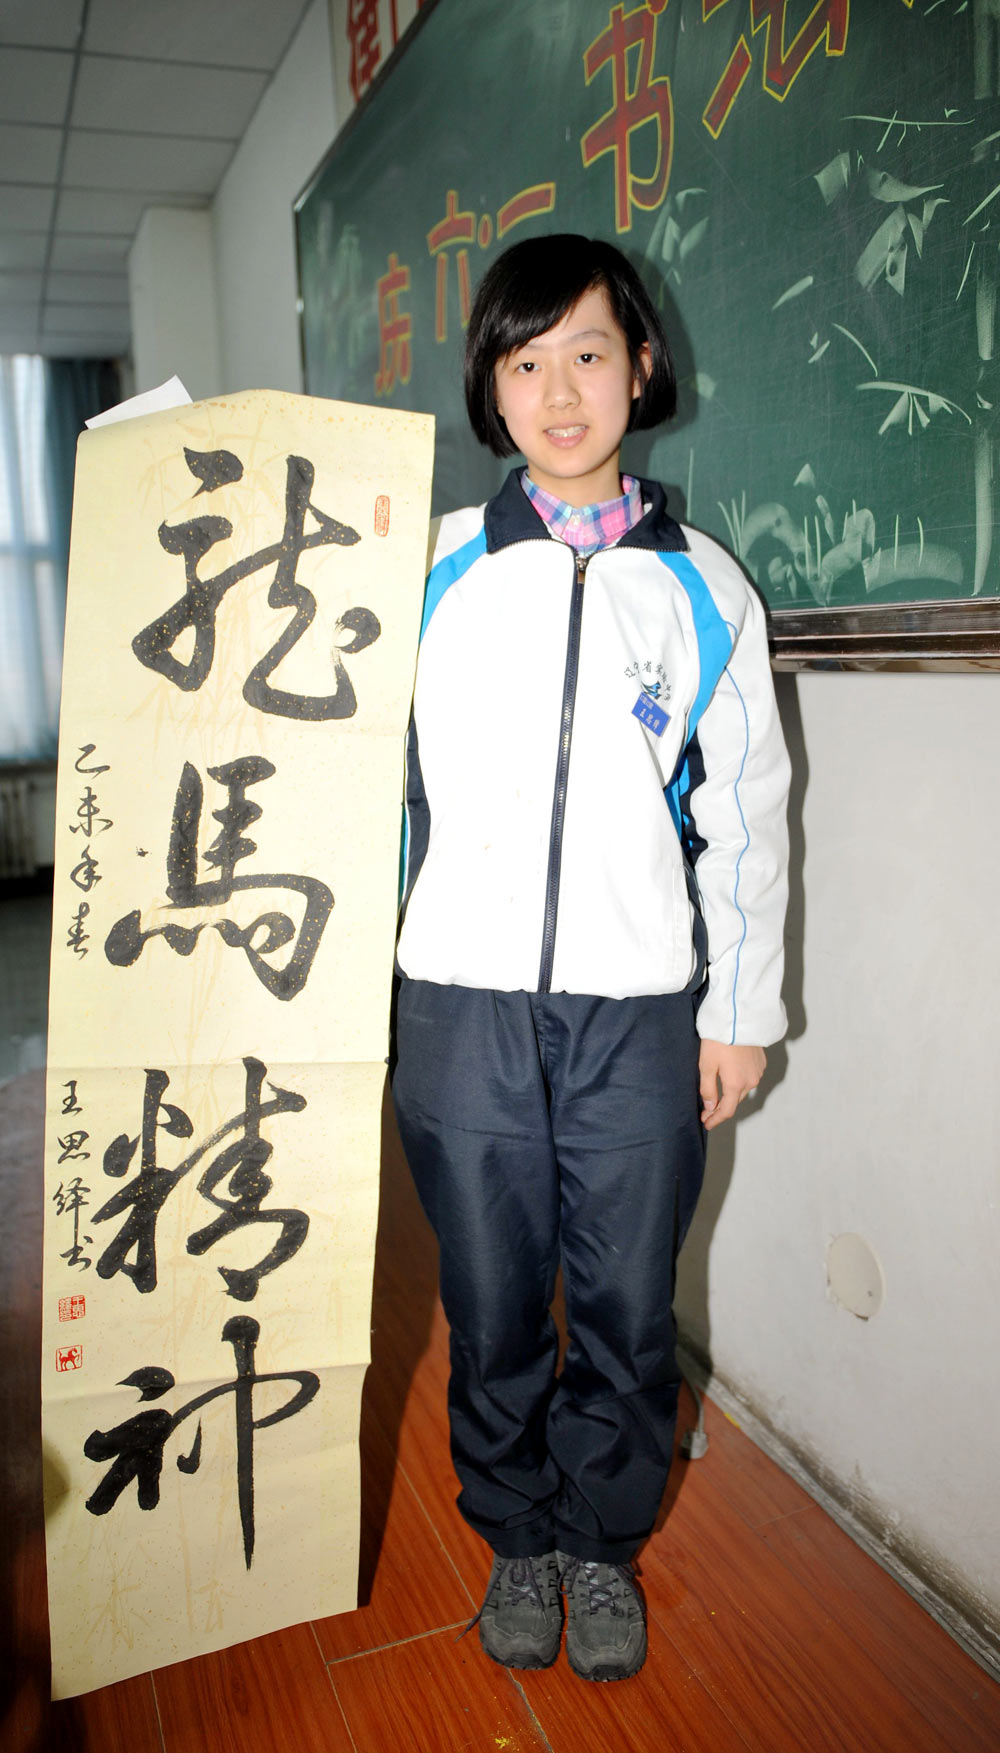 庆六·一书法
龍馬精神
乙未年春
王思绎书